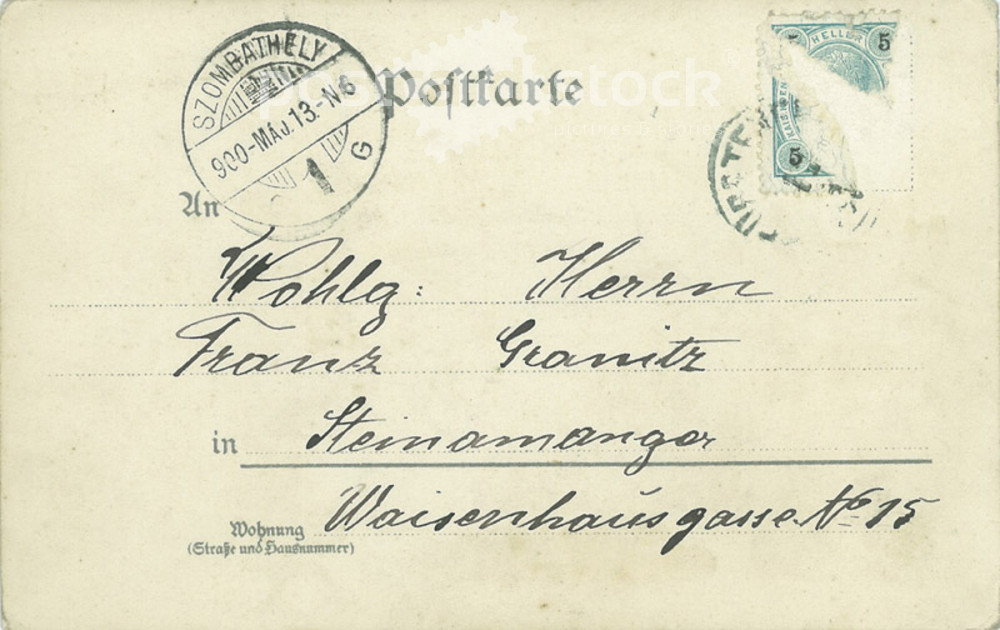 SZOMBATHELY
900-MÁJ.13-N6
1
G
Postkarte
HELLER 5
5
An
Wohlg: Herrn
Franz Granitz
in Steinamanger
Wohnung Waisenhausgasse No 15
(Straße und Hausnummer)